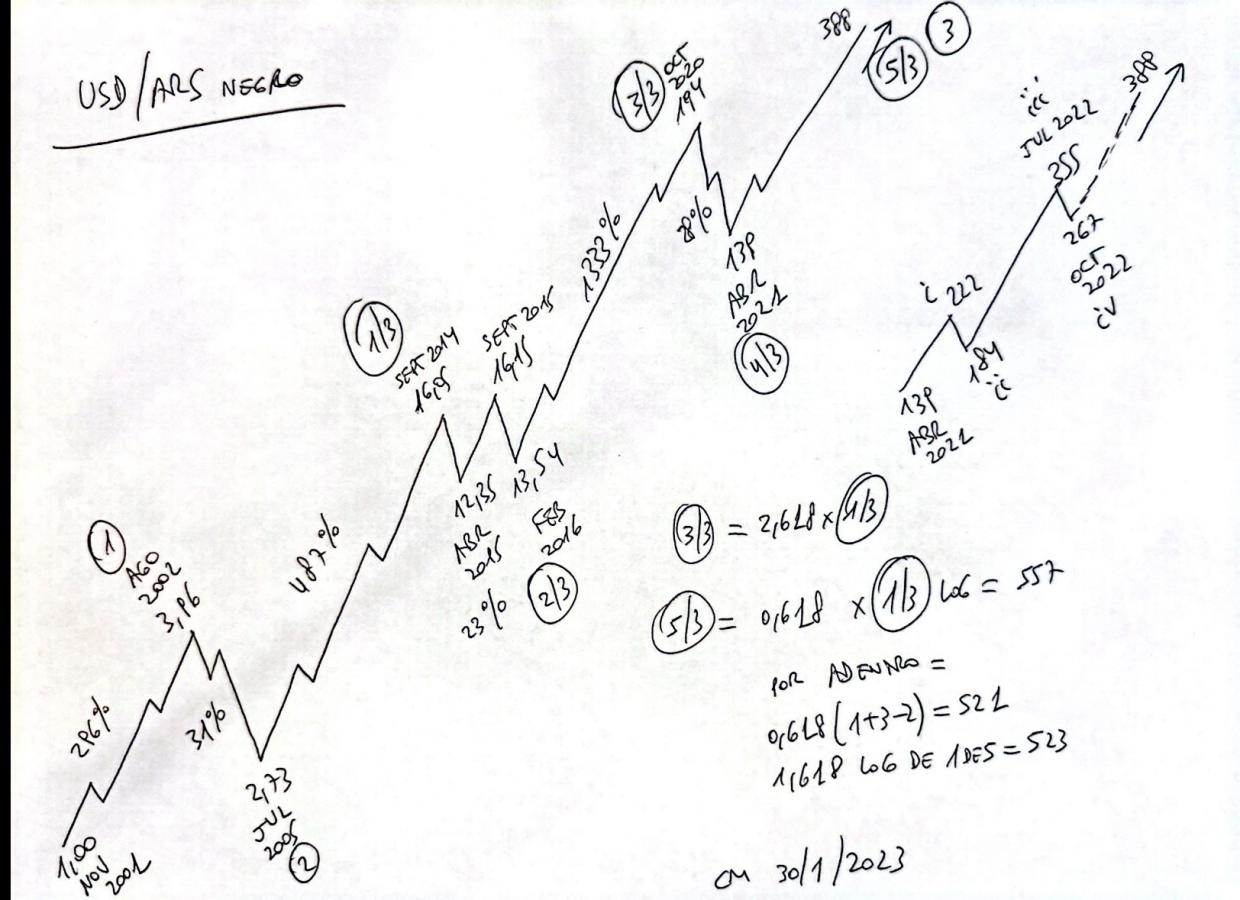 USD/ARS NEGRO
1
AGO
2002
3,86
286%
1,00
NOV
2001
31%
2,73
JUL
2005
2
487%
1/3
SEPT 2014
16,05
12,35
ABR
2015
23%
SEPT 2015
16,15
13,54
FEB
2016
2/3
1333%
3/3
OCT
2020
194
28%
139
ABR
2021
4/3
388
5/3
3
139
ABR
2021
i 222
184
ii
iii
JUL 2022
355
267
OCT
2022
iv
388
3/3 = 2,618 x 1/3
5/3 = 0,618 x 1/3 LOG = 557
POR ADENTRO =
0,618 (1+3-2) = 521
1,618 LOG DE 1 DE 5 = 523
CM 30/1/2023